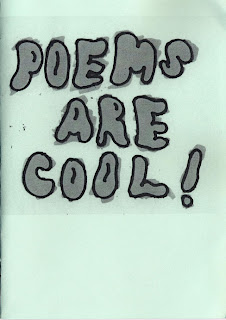 POEMS
ARE
COOL!